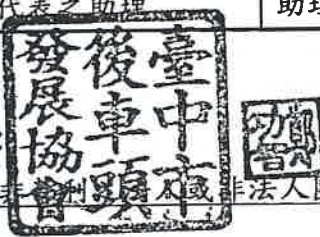 代表之助理
助理
臺中市
後車頭
發展協會
利
或非法人